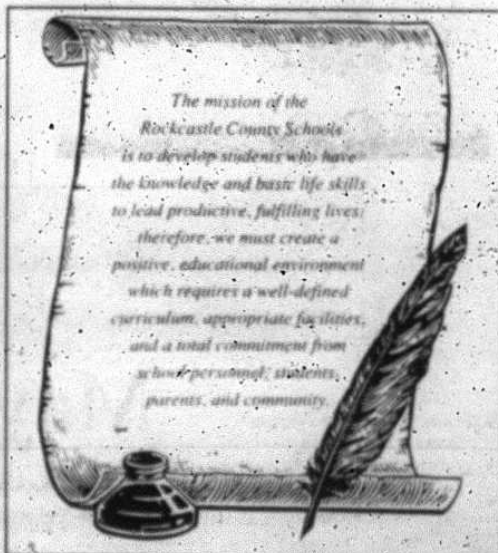 The mission of the
Rockcastle County Schools
is to develop students who have
the knowledge and basic life skills
to lead productive, fulfilling lives;
therefore, we must create a
positive, educational environment
which requires a well-defined
curriculum, appropriate facilities,
and a total commitment from
school personnel, students,
parents, and community.